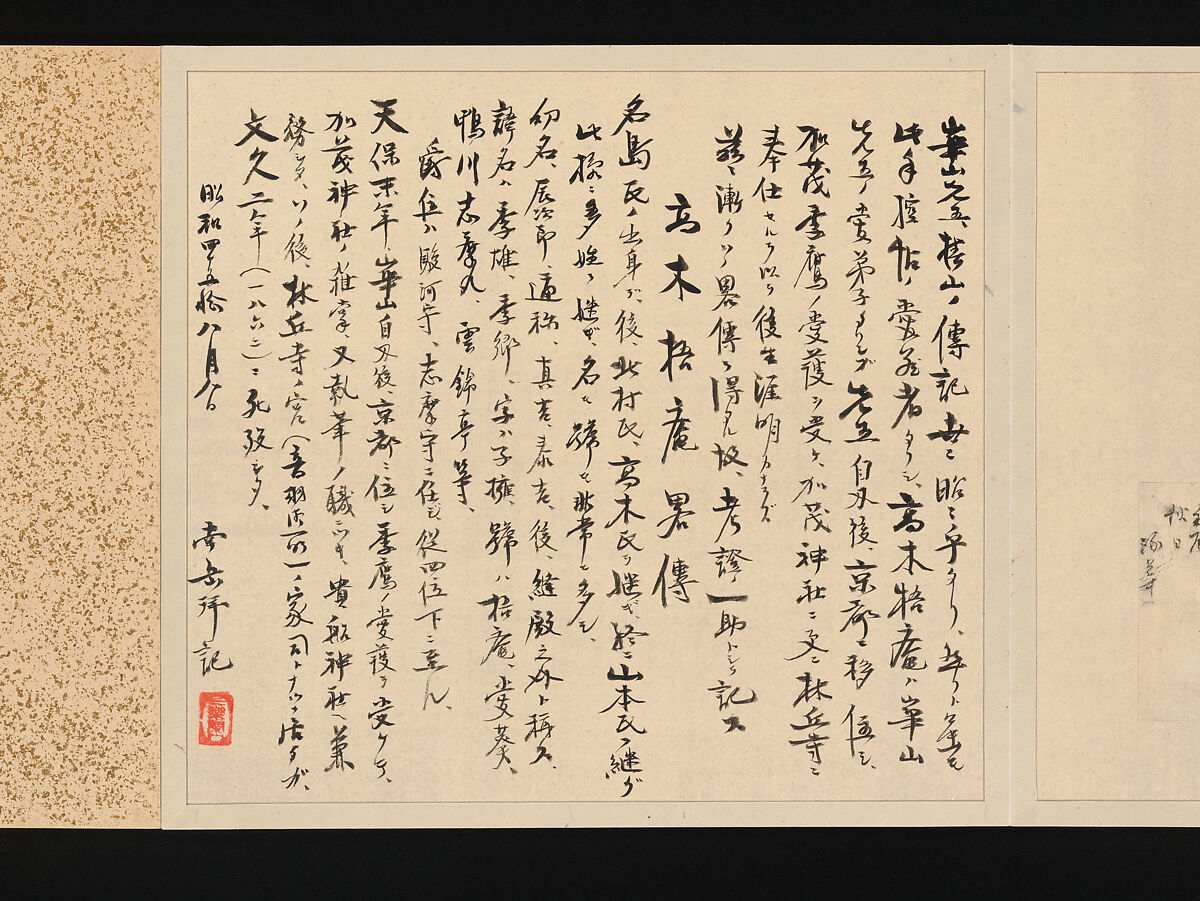 華山先生椿山ノ傳記世ニ昭々乎タリ、然リト雖モ
此手控帖ノ愛蔵者タリシ、高木梧庵ハ崋山
先生ノ愛弟子ナリシガ先生自刃後、京都ニ移住シ、
加茂季鷹ノ愛護ヲ受ケ、加茂神社ニ更ニ林丘寺ニ
奉仕セルヲ以テ後生涯明カナラズ
茲ニ漸クソノ畧傳ヲ得タレ故、考證ノ一助トシテ記ス
高木梧庵畧傳
名島氏ノ出身ダガ、後、北村氏、高木氏ヲ継ギ、終ニ山本氏ヲ継グ
此様ニ多姓ヲ継ギ、名モ號モ非常ニ多シ、
幼名、辰次郎、通称、真吉、泰吉、後、縫殿之外ト稱ス、
諱名ハ季雄、季郷、字ハ子擁、號ハ梧庵、愛葵、
鴨川志摩丸、雲錦亭等、
爵位ハ駿河守、志摩守ニ任ジ從四位下ニ至ル、
天保末年崋山自刃後、京都ニ住シ季鷹ノ愛護ヲ受ケテ、
加茂神社ノ雑掌、又執筆ノ職ニツキ、貴船神社ヘ兼
務シタ、ソノ後、林丘寺ノ宮（音羽御所）ノ家司トナツテ居タガ、
文久二年（一八六二）ニ死歿シタ、
昭和四五拾八月八日
岳拜記